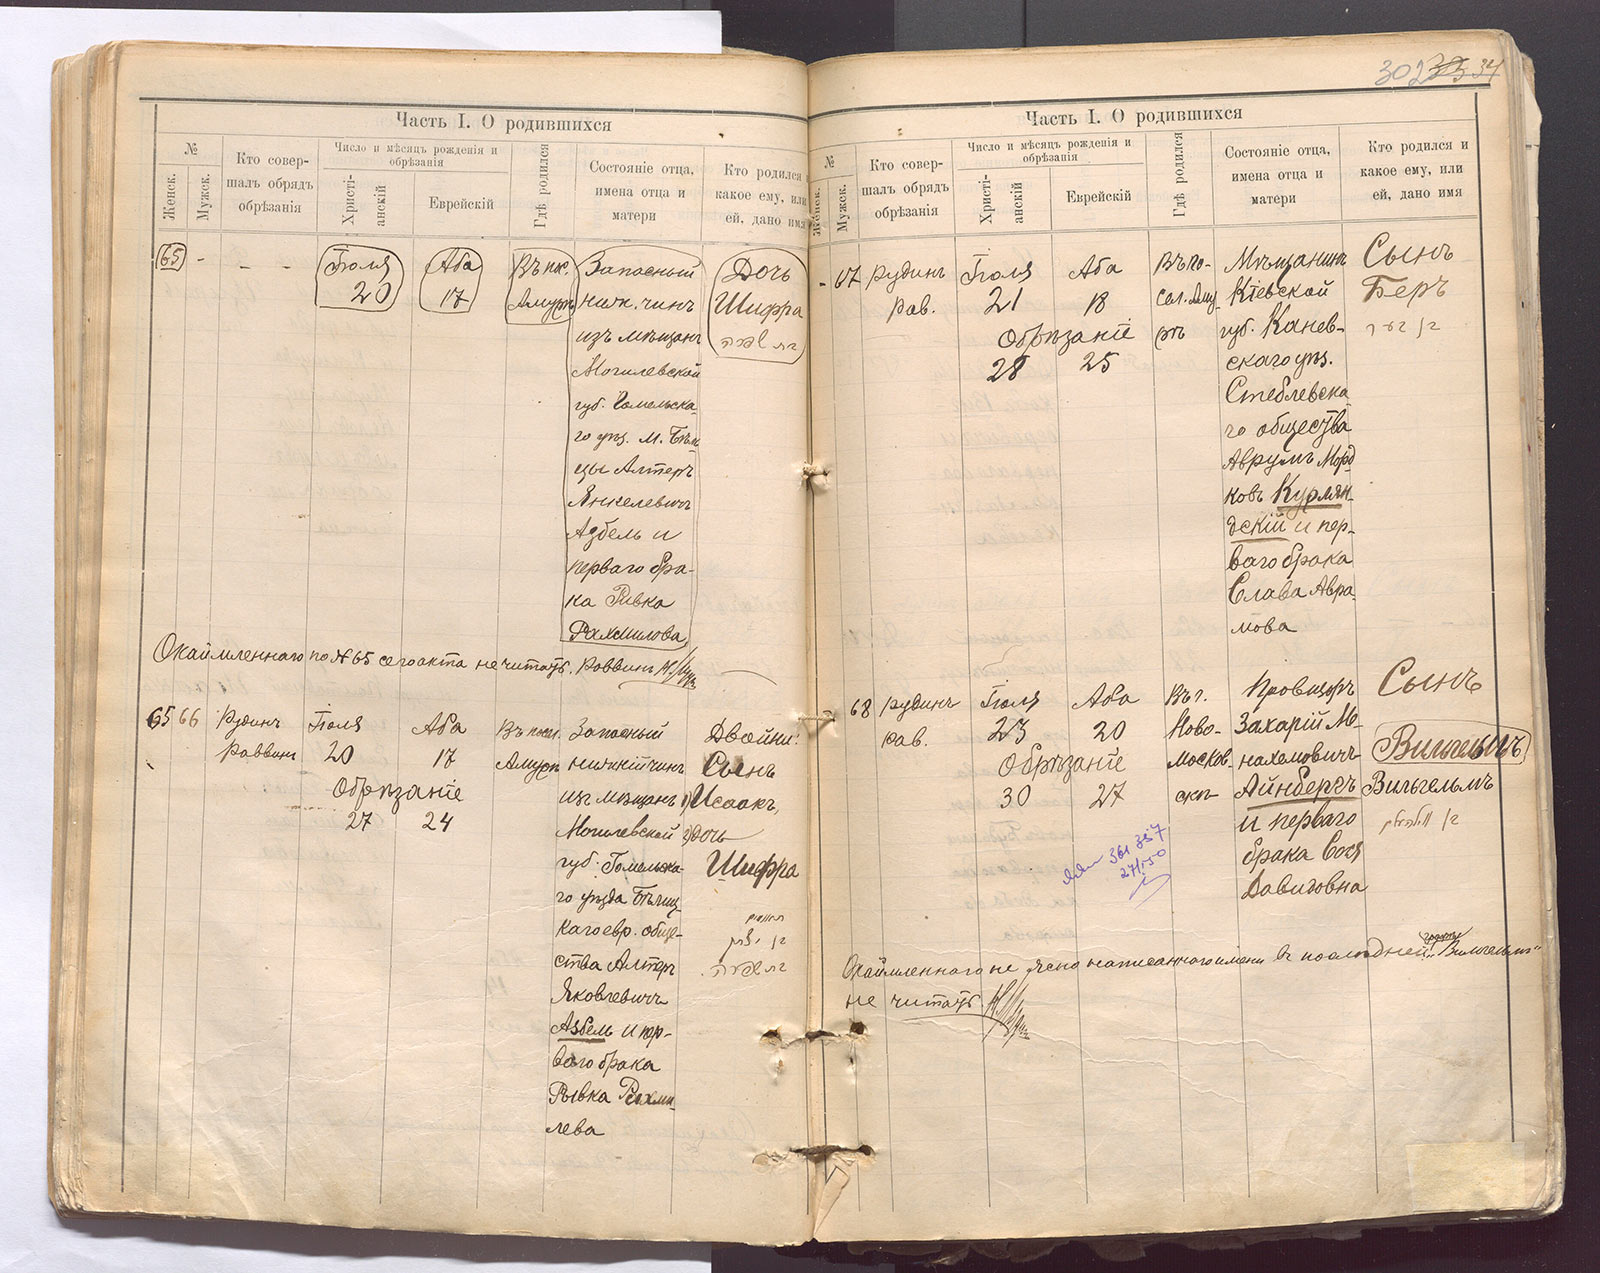 302 33 34
Часть I. О родившихся
№
Женск.
Мужск.
Кто совер-
шалъ обрядъ
обрѣзанія
Число и мѣсяцъ рожденія и
обрѣзанія
Христі-
анскій
Еврейскій
Гдѣ родился
Состояніе отца,
имена отца и
матери
Кто родился и
какое ему, или
ей, дано имя
65 - - - -
Іюля
20
Аба
17
Въ пос.
Амурѣ
Запасный
нижн. чинъ
изъ мѣщанъ
Могилевской
губ. Гомельска-
го уѣз. м. Бѣли-
цы Алтеръ
Янкелевичъ
Азбель и
перваго бра-
ка Ривка
Рахмилова
Дочь
Шифра
בת שפרה
Окаймленнаго по № 65 сего акта не читать. Раввинъ
65 66
Рудинъ
Раввинъ
Іюля
20
Аба
17
Обрѣзаніе
27 24
Въ пос.
Амурѣ
Запасный
нижній чинъ
изъ мѣщанъ
Могилевской
губ. Гомельска-
го уѣзда Бѣлиц-
каго евр. обще-
ства Алтеръ
Яковлевичъ
Азбель и пер-
ваго брака
Рывка Рахми-
лева
Двойни:
Сынъ
1) Исаакъ,
2) дочь
Шифра
תאומים
בן יצחק
בת שפרה
Часть I. О родившихся
№
Женск.
Мужск.
Кто совер-
шалъ обрядъ
обрѣзанія
Число и мѣсяцъ рожденія и
обрѣзанія
Христі-
анскій
Еврейскій
Гдѣ родился
Состояніе отца,
имена отца и
матери
Кто родился и
какое ему, или
ей, дано имя
- 67
Рудинъ
Рав.
Іюля
21
Аба
18
Обрѣзаніе
28 25
Въ по-
сел. Аму-
рѣ
Мѣщанинъ
Кіевской
губ. Канев-
скаго уѣз.
Стеблевска-
го общества
Аврумъ Морд-
ковъ Курлян-
дскій и пер-
ваго брака
Слава Авра-
мова
Сынъ
Беръ
בן בער
68
Рудинъ
Рав.
Іюля
23
Аба
20
Обрѣзаніе
30 27
Въ г.
Ново-
москов-
скѣ
Провизоръ
Захарій Ме-
нахемовичъ
Айнбергъ
и перваго
брака Сося
Давидовна
Сынъ
Вильгельмъ
Вильгельмъ
בן וולהעלם
361 357
27/I 50
Окаймленнаго не ясно написаннаго имени въ последней графѣ „Вильгельмъ“
не читать